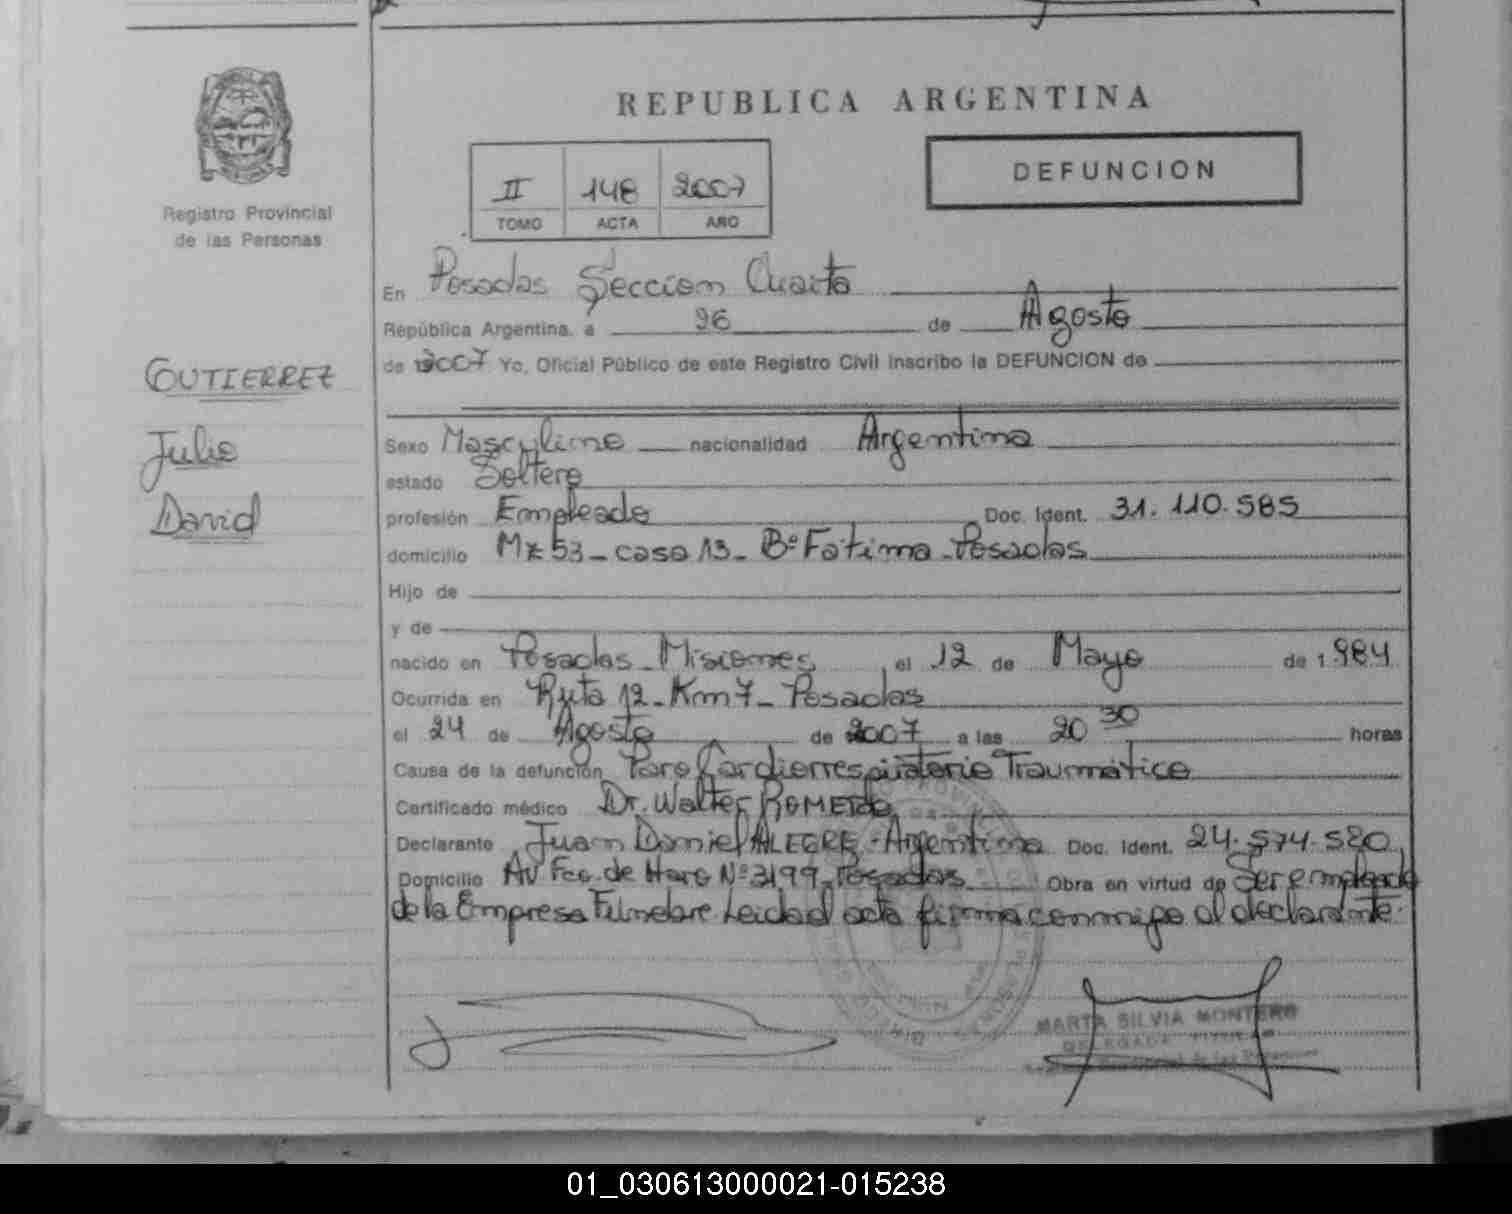 REPUBLICA ARGENTINA
Registro Provincial
de las Personas
II 148 2007
TOMO ACTA AÑO
DEFUNCION
GUTIERREZ
Julio
David
En Posadas Sección Cuarta
República Argentina, a 26 de Agosto
de 2007 Yo, Oficial Público de este Registro Civil Inscribo la DEFUNCION de
Sexo Masculino nacionalidad Argentina
estado Soltero
profesión Empleado Doc. Ident. 31.110.585
domicilio Mz 53 - casa 13 - Bº Fátima - Posadas
Hijo de
y de
nacido en Posadas - Misiones el 12 de Mayo de 1984
Ocurrida en Ruta 12 - Km 7 - Posadas
el 24 de Agosto de 2007 a las 20 30 horas
Causa de la defunción Paro Cardiorrespiratorio Traumático
Certificado médico Dr. Walter ROMERO
Declarante Juan Daniel ALEGRE - Argentino Doc. Ident. 24.574.580
Domicilio Av Fco. de Haro Nº 3199 - Posadas Obra en virtud de Ser empleado
de la Empresa Fúnebre. Leida el acta firma conmigo el declarante.
MARTA SILVIA MONTERO
DELEGADA TITULAR
01_030613000021-015238